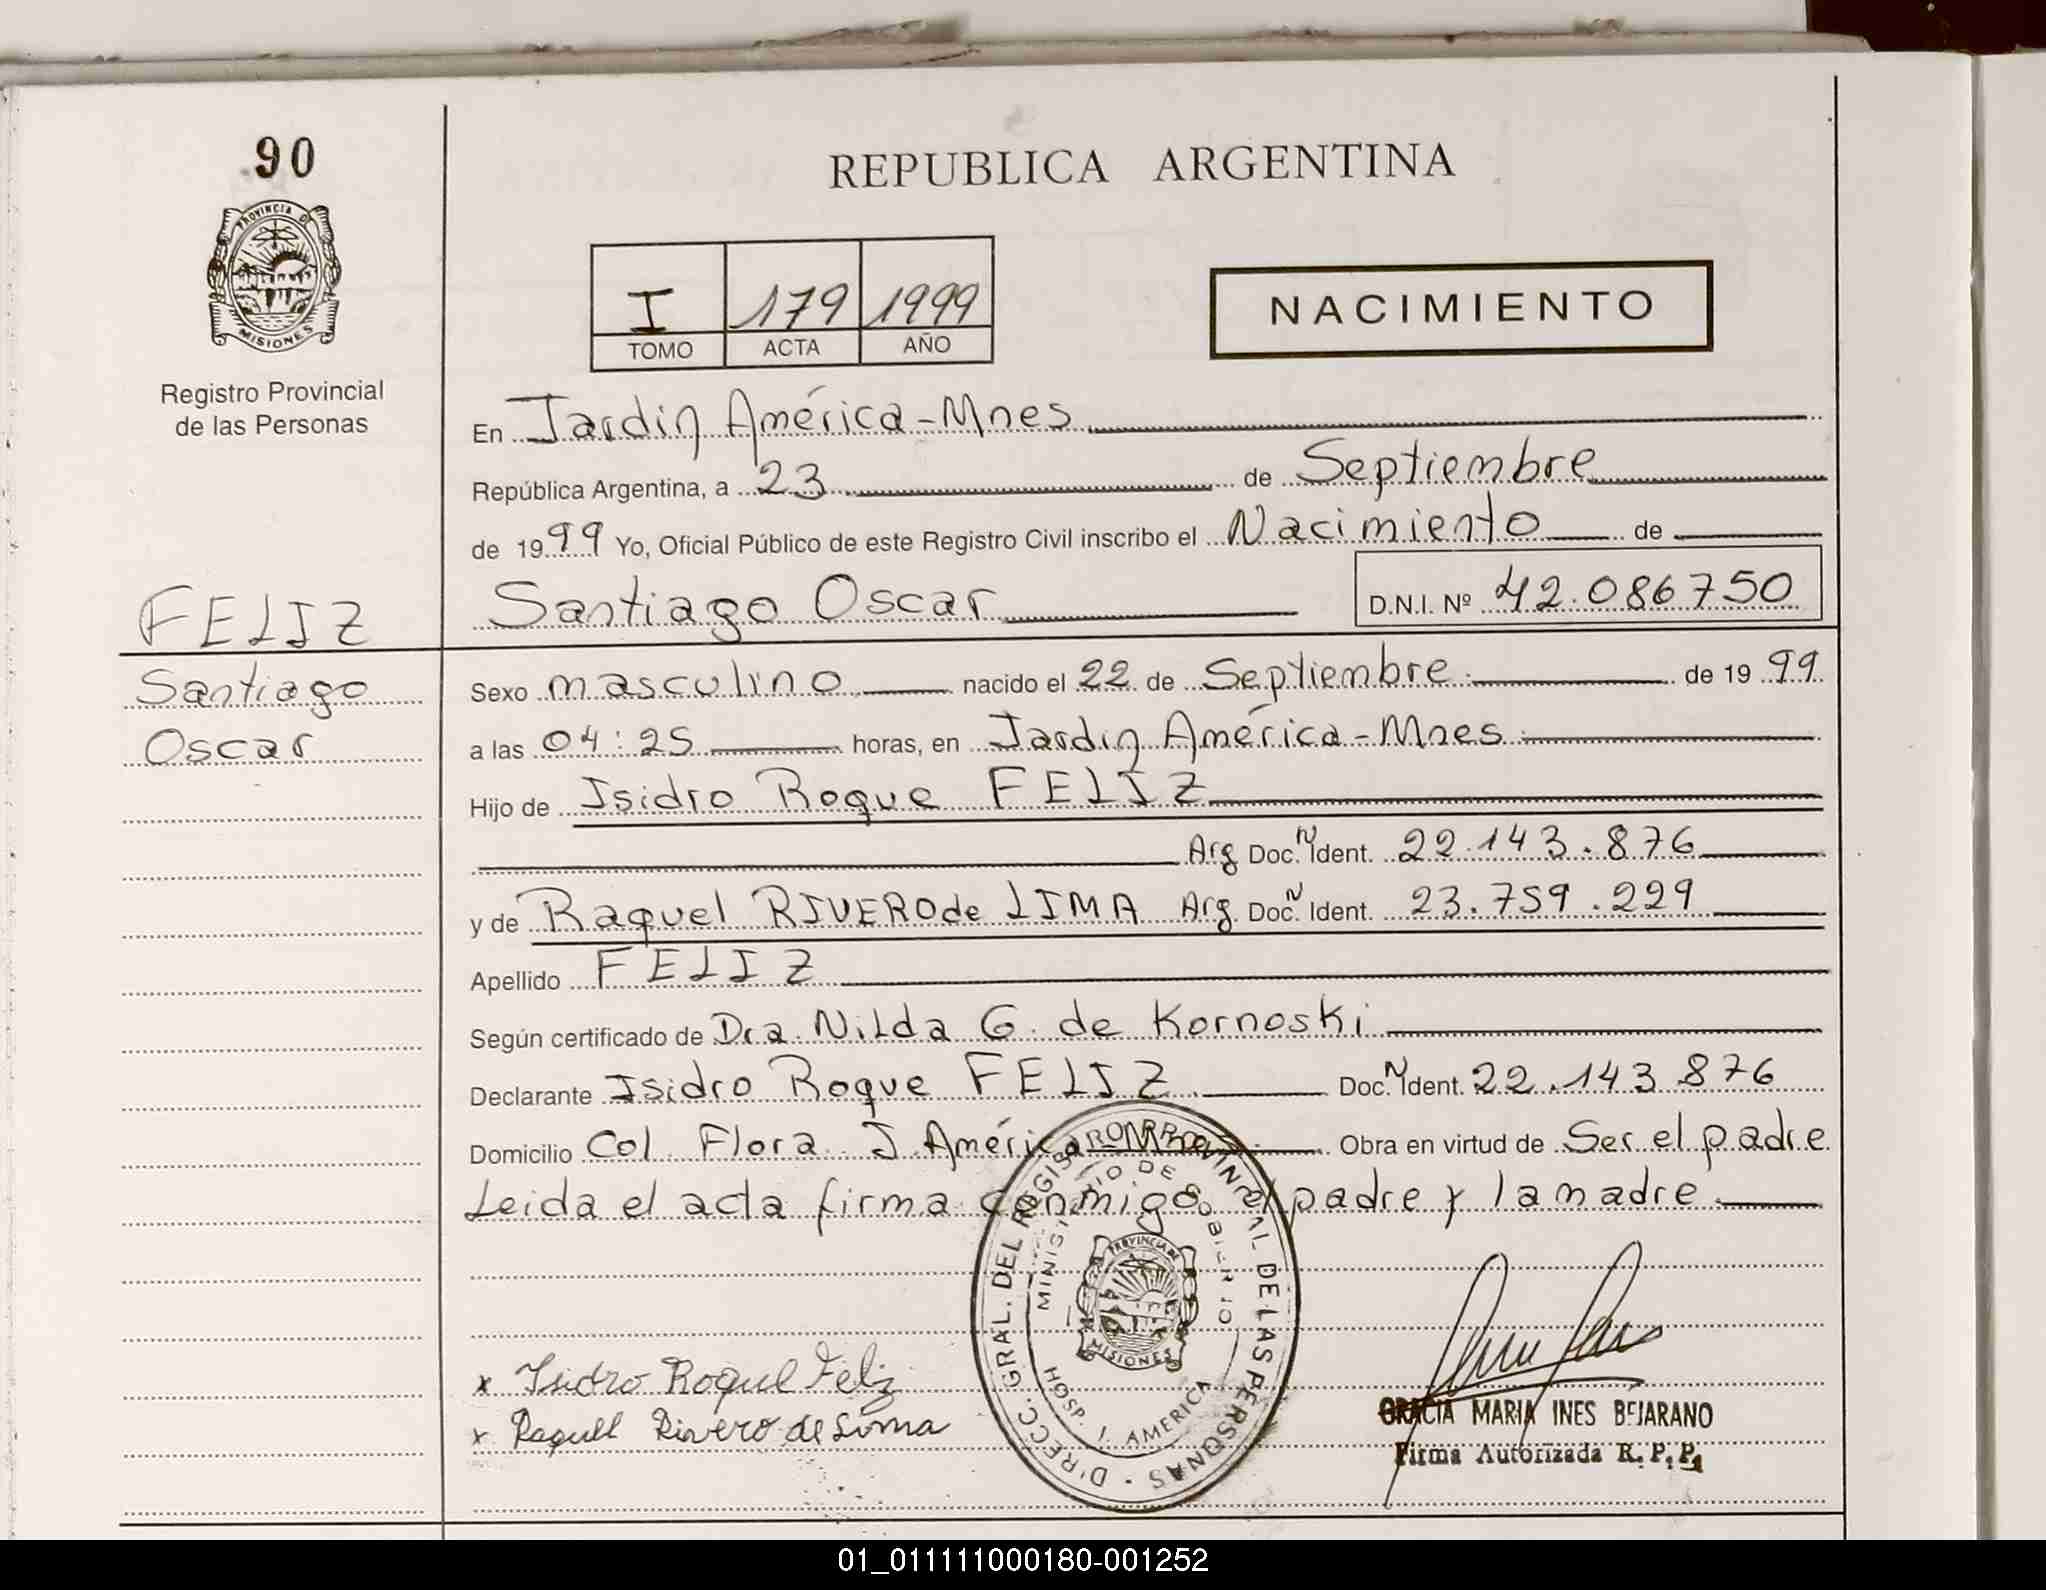 90
PROVINCIA D
MISIONES
Registro Provincial
de las Personas
FELIZ
Santiago
Oscar
REPUBLICA ARGENTINA
I 179 1999
TOMO ACTA AÑO
NACIMIENTO
En Jardin América-Mnes
República Argentina, a 23 de Septiembre
de 1999 Yo, Oficial Público de este Registro Civil inscribo el Nacimiento de
Santiago Oscar D.N.I. Nº 42.086750
Sexo masculino nacido el 22 de Septiembre de 1999
a las 04:25 horas, en Jardin América-Mnes
Hijo de Isidro Roque FELIZ
Arg Doc. N Ident. 22.143.876
y de Raquel RIVERO de LIMA Arg. Doc. N Ident. 23.759.229
Apellido FELIZ
Según certificado de Dra. Nilda G. de Kornoski
Declarante Isidro Roque FELIZ Doc. N Ident. 22.143 876
Domicilio Col. Flora J. América-Mnes Obra en virtud de Ser el padre
Leida el acta firma conmigo el padre y la madre
x Isidro Roque Feliz
x Raquel Rivero de Lima
DIRECC. GRAL. DEL REGISTRO PROVINCIAL DE LAS PERSONAS
MINISTERIO DE GOBIERNO
PROVINCIA DE
MISIONES
HOSP. J. AMERICA
GRACIA MARIA INES BEJARANO
Firma Autorizada R. P. P.
01_011111000180-001252